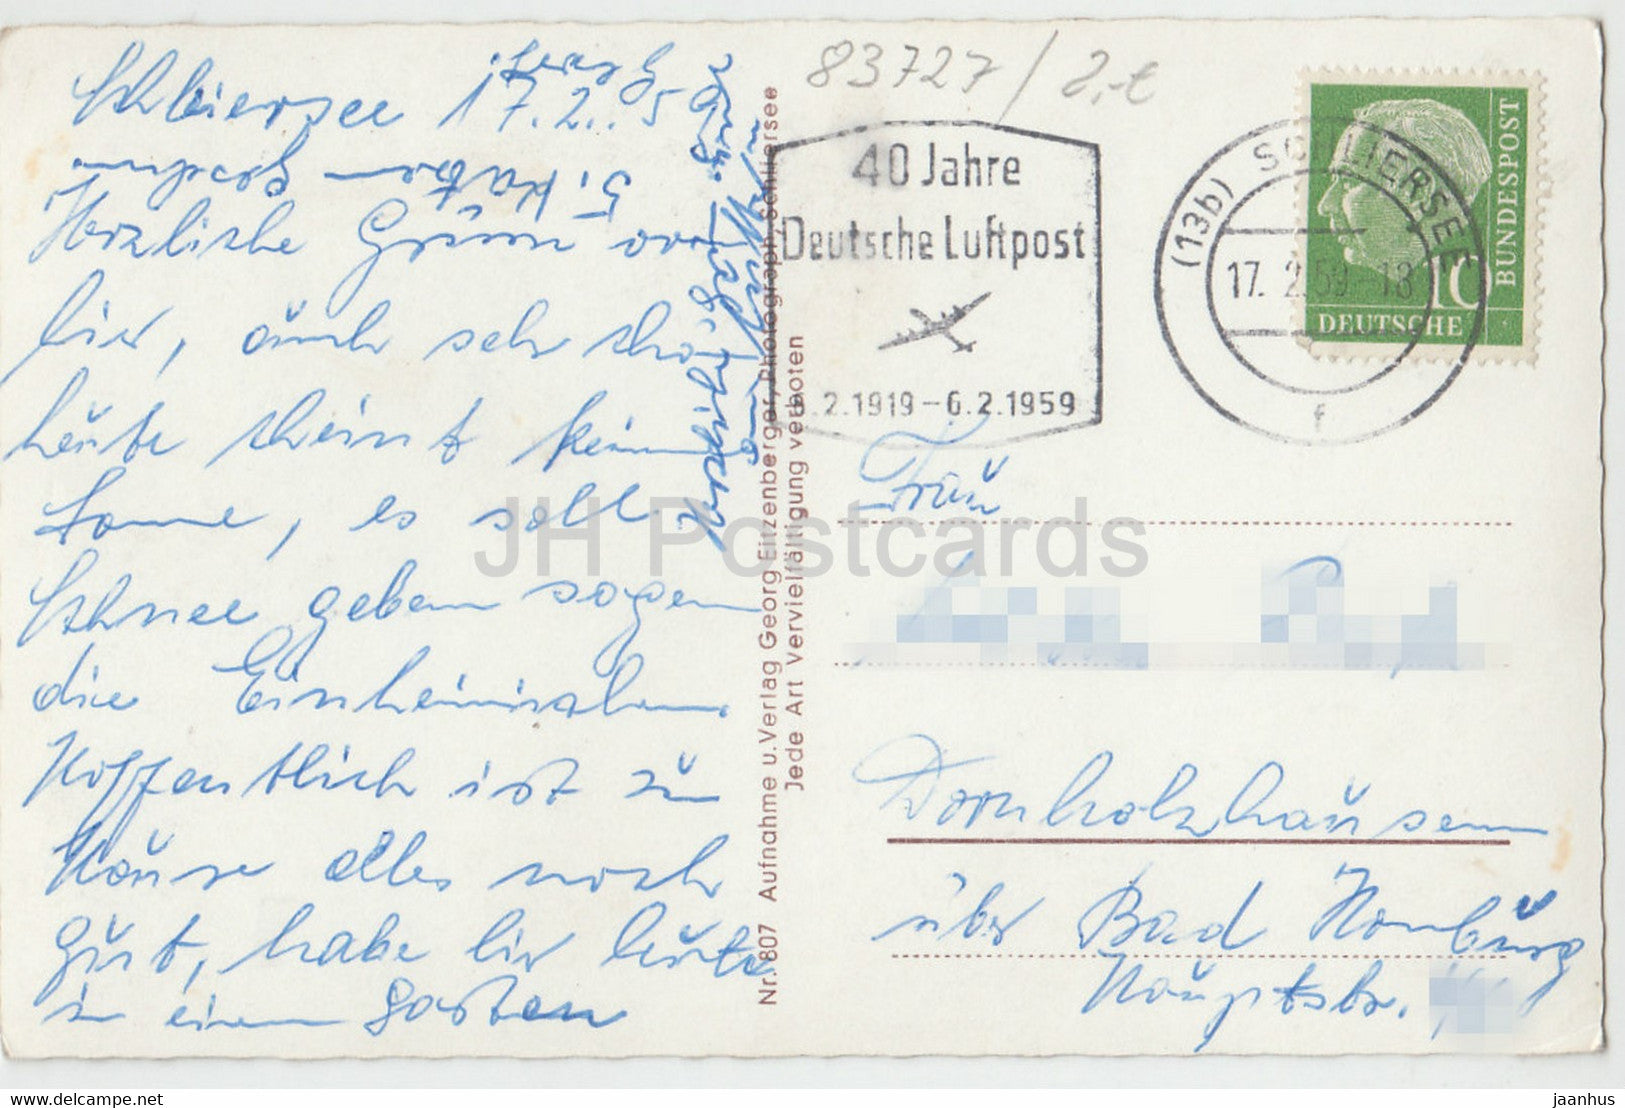 83727/2,-€
Schliersee 17.2.5
Herzliche
hier, auch sehr
heute scheint keine
Sonne, es soll
Schnee geben sagen
die Einheimischen
Hoffentlich ist zu
Hause alles noch
gut, habe hier heute
in einem Garten
5. Katzen gesehen
Nr. 807 Aufnahme u. Verlag Georg Eizenberger, Photograph, Schliersee
Jede Art Vervielfältigung verboten
40 Jahre
Deutsche Luftpost
.2.1919-6.2.1959
(13b) SCHLIERSEE
17. 2.59-18
f
10
DEUTSCHE
BUNDESPOST
Frau
Dornholzhausen
über Bad Homburg
Hauptstr.
JH Postcards
delcampe.net
jaanhus